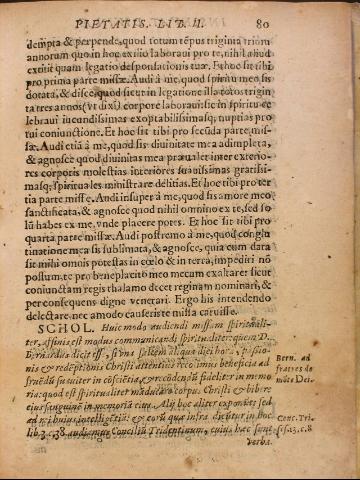 PIETATIS. LIB. II. 80
dempta & perpende, quod totum tēpus triginta trium
annorum quo in hoc exilio laboraui pro te, nihil aliud
extitit quam legatio desponsationis tuæ. Et hoc sit tibi
pro prima parte missæ. Audi à me, quod spiritu meo sis
dotata, & disce, quod sicut in legatione illa totos triginta
tres annos (vt dixi) corpore laboraui: sic in spiritu ce
lebraui iucundissimas exoptabilissimasq; nuptias pro
tui coniunctione. Et hoc sit tibi pro secūda parte mis-
sæ. Audi etiā à me, quod sis diuinitate mea adimpleta,
& agnosce quod diuinitas mea præualet inter exterio-
res corporis molestias interiores suauissimas gratissi-
masq; spirituales ministrare delitias. Et hoc tibi pro ter
tia parte missæ. Audi insuper à me, quod sis amore meo
sanctificata, & agnosce quod nihil omnino ex te, sed so
lū habes ex me, vnde placere potes. Et hoc sit tibi pro
quarta parte missæ. Audi postremo à me, quod conglu
tinatione mea sis sublimata, & agnosce, quia cum data
sit mihi omnis potestas in cœlo & in terra, impediri nō
possum, te pro beneplacito meo mecum exaltare: sicut
coniunctam regis thalamo decet reginam nominari, &
per consequens digne venerari. Ergo his intendendo
delectare nec amodo causeris te missa caruisse.
SCHOL. Huic modo audiendi missam spirituali-
ter, affinis est modus communicandi spiritualiter: quem D.
Bernardus dicit esse, si vna saltem aliqua diei hora, passio-
nis & redēptionis Christi attentius recolimus beneficia ad
fruēdū suauiter in cōsciētia, & recōdendū fideliter in memo
ria: quod est spiritualiter māducare corpus Christi & bibere
eius sanguinē in memoriā eius. Alij hoc aliter exponētes sed
lib. 3. c. 38. audiemus Conciliū Tridentinum, cuius hæc sunt
verba.
Bern. ad
fratres de
mōte Dei.
Conc. Tri.
sess. 13. c. 8